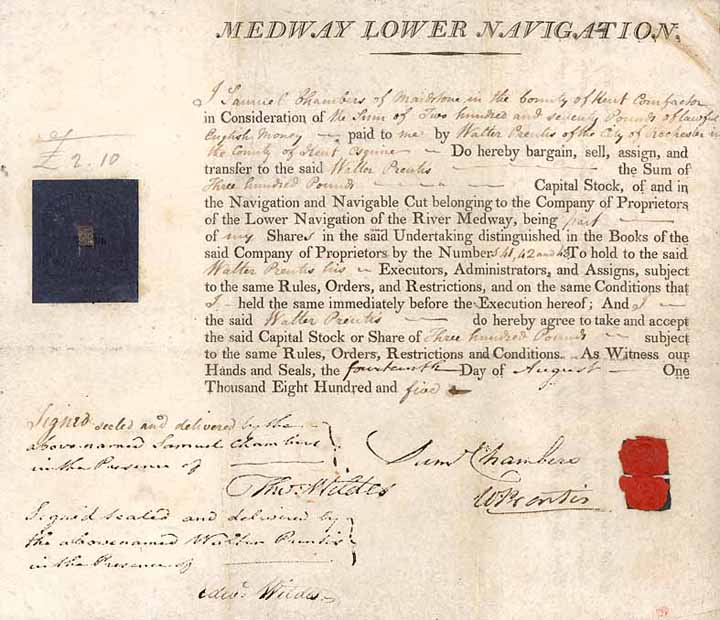 MEDWAY LOWER NAVIGATION.
I Samuel Chambers of Maidstone in the County of Kent Cornfactor
in Consideration of the Sum of Two hundred and seventy Pounds of lawful
English Money paid to me by Walter Prentis of the City of Rochester in
the County of Kent Esquire Do hereby bargain, sell, assign, and
transfer to the said Walter Prentis the Sum of
Three hundred Pounds Capital Stock, of and in
the Navigation and Navigable Cut belonging to the Company of Proprietors
of the Lower Navigation of the River Medway, being part
of my Shares in the said Undertaking distinguished in the Books of the
said Company of Proprietors by the Numbers 41, 42 and 43 To hold to the said
Walter Prentis his Executors, Administrators, and Assigns, subject
to the same Rules, Orders, and Restrictions, and on the same Conditions that
I held the same immediately before the Execution hereof; And I
the said Walter Prentis do hereby agree to take and accept
the said Capital Stock or Share of Three hundred Pounds subject
to the same Rules, Orders, Restrictions and Conditions. As Witness our
Hands and Seals, the fourteenth Day of August One
Thousand Eight Hundred and five
£2.10
Signed sealed and delivered by the
abovenamed Samuel Chambers
in the Presence of
Thos. Wildes
Signed sealed and delivered by
the abovenamed Walter Prentis
in the Presence of
Edwd. Wildes
Saml Chambers
W Prentis